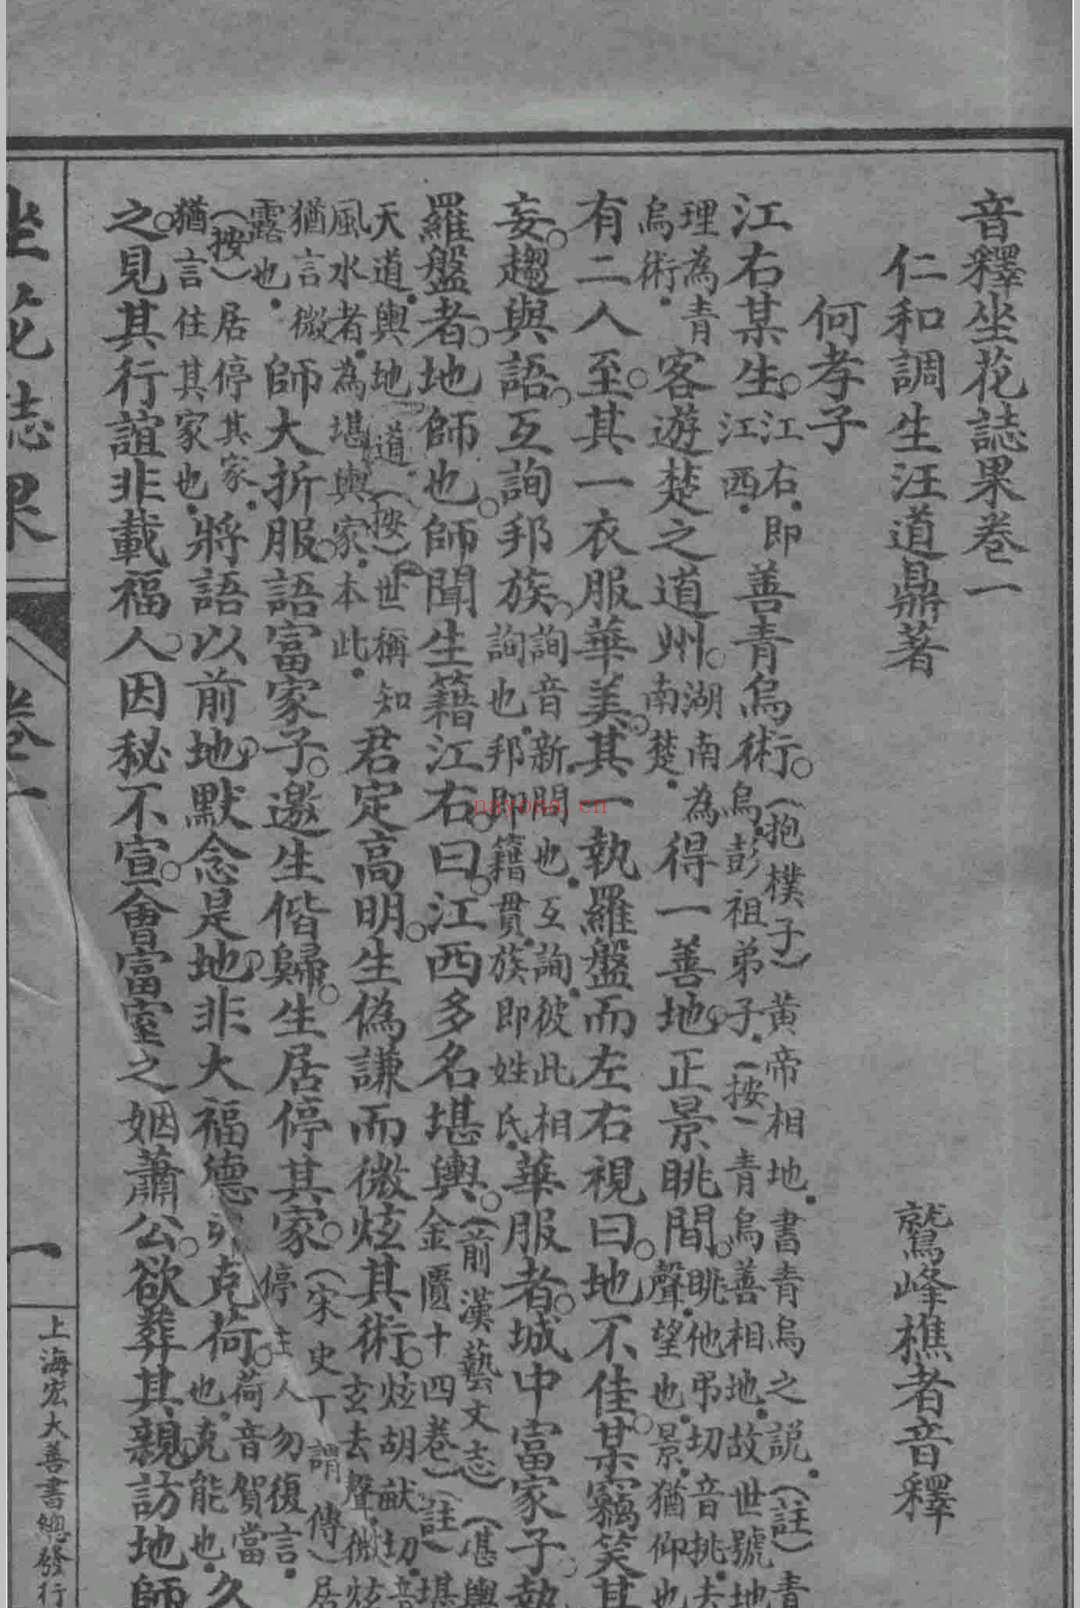 音釋坐花誌果卷一
仁和調生汪道鼎著 鷲峰樵者音釋
何孝子
江右某生。江右．即江西．善青烏術。(抱樸子)黃帝相地．書青烏之說．(註)青烏．彭祖弟子．(按)青烏善相地．故世號地
理為青烏術．客遊楚之道州。湖南為南楚．得一善地。正景眺間。眺他弔切．音挑．去聲．望也．景．猶仰也
有二人至。其一衣服華美。其一執羅盤而左右視曰。地不佳。某竊笑其
妄。趨與語。互詢邦族。詢音新．問也．互詢．彼此相詢也．邦即籍貫．族即姓氏．華服者。城中富家子。執
羅盤者。地師也。師聞生籍江右。曰。江西多名堪輿。(前漢藝文志)(堪輿金匱十四卷)(註)堪
天道．輿地道．(按)世稱知風水者．為堪輿家．本此．君定高明。生偽謙而微炫其術。炫胡畎切．音玄去聲．微炫
猶言微露也．師大折服。語富家子。邀生偕歸。生居停其家。(宋史丁謂傳)居停主人勿復言．
(按)居停其家．猶言住其家也．將語以前地。默念是地。非大福德弗克荷。荷音賀當也．克能也．久
之。見其行誼非載福人。因秘不宣。會富室之姻蕭公。欲葬其親。訪地師
坐花誌果 卷一 一 上海宏大善書總發行
nayona.cn